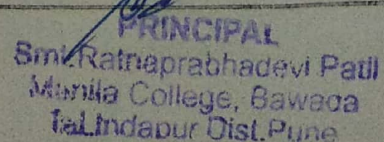 PRINCIPAL
Smt.Ratnaprabhadevi Patil
Mahila College, Bawada
Tal.Indapur Dist.Pune